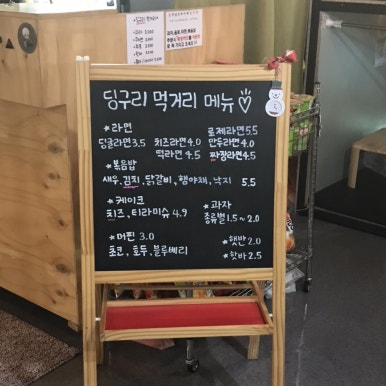 딩구리 먹거리 메뉴
*라면 로제라면5.5
딩굴라면3.5 치즈라면4.0 만두라면4.0
떡라면4.5 짜장라면4.5
*볶음밥
새우, 김치, 닭갈비, 햄야채, 낙지 5.5
*케이크 *과자
치즈, 티라미슈 4.9 종류별1.5~2.0
*머핀 3.0 *햇반2.0
초코, 호두, 블루베리 *핫바2.5